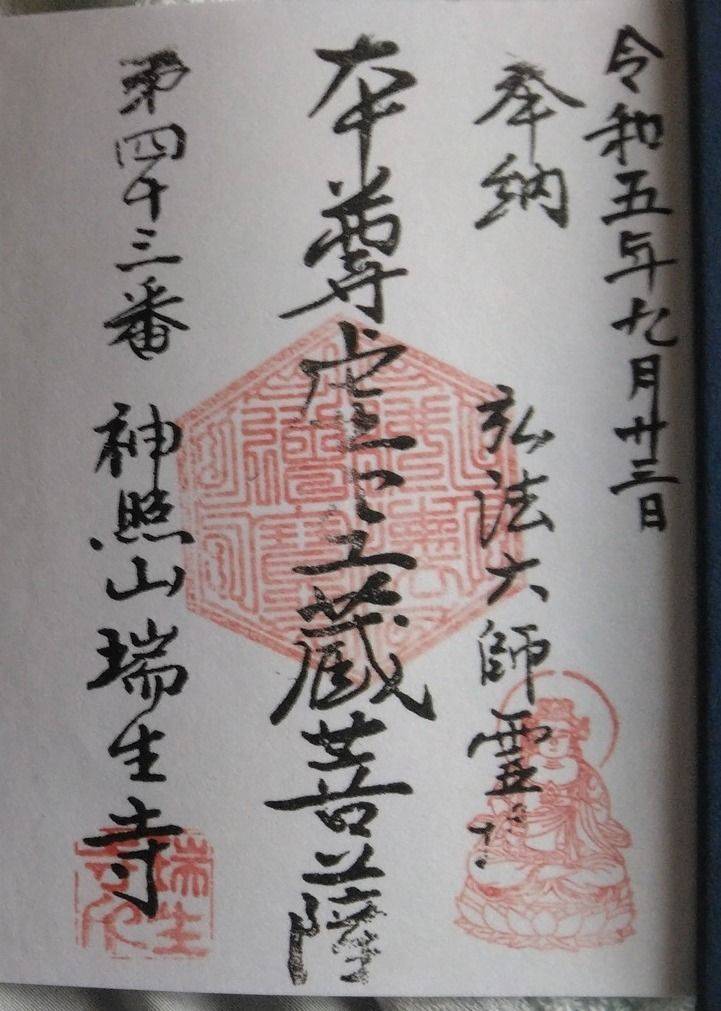 令和五年九月廿三日
奉納
弘法大師霊場
本尊虚空蔵菩薩
第四十三番
神照山瑞生寺
瑞生